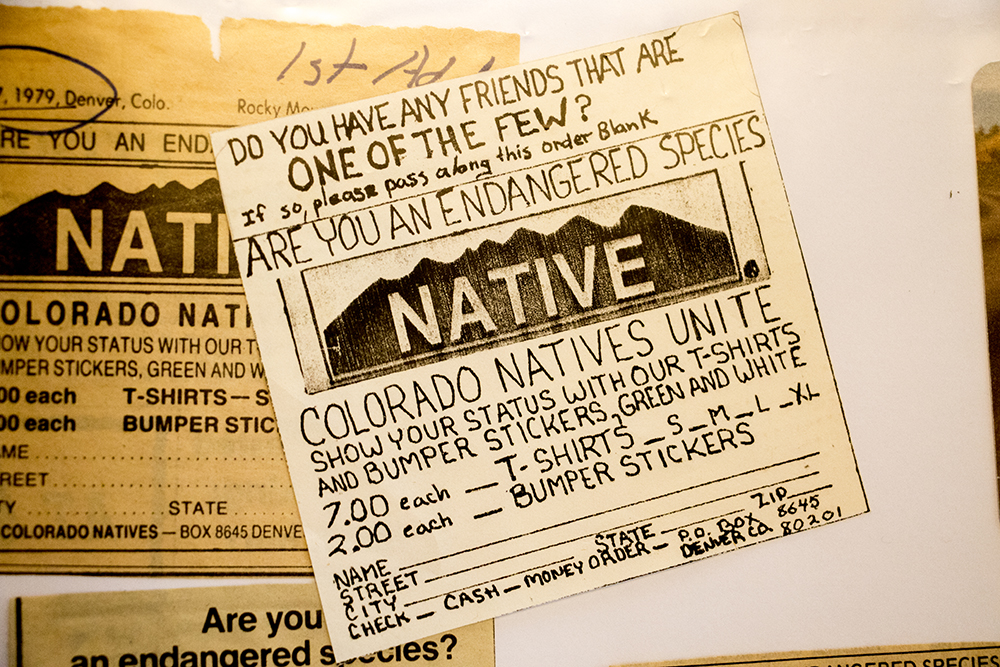 1st Ad
7, 1979, Denver, Colo.
Rocky Mo
RE YOU AN END
NATI
OLORADO NATI
OW YOUR STATUS WITH OUR T
MPER STICKERS, GREEN AND W
00 each T-SHIRTS — S
00 each BUMPER STIC
ME
REET
TY STATE
COLORADO NATIVES — BOX 8645 DENVE
DO YOU HAVE ANY FRIENDS THAT ARE
ONE OF THE FEW?
If so, please pass along this order Blank
ARE YOU AN ENDANGERED SPECIES
NATIVE
COLORADO NATIVES UNITE
SHOW YOUR STATUS WITH OUR T-SHIRTS
AND BUMPER STICKERS, GREEN AND WHITE
7.00 each — T-SHIRTS _S _M _L _XL
2.00 each — BUMPER STICKERS
NAME
STREET
CITY STATE ZIP
CHECK — CASH — MONEY ORDER — P.O. BOX 8645
DENVER CO. 80201
Are you
an endangered species?
DANGERED SPECIES